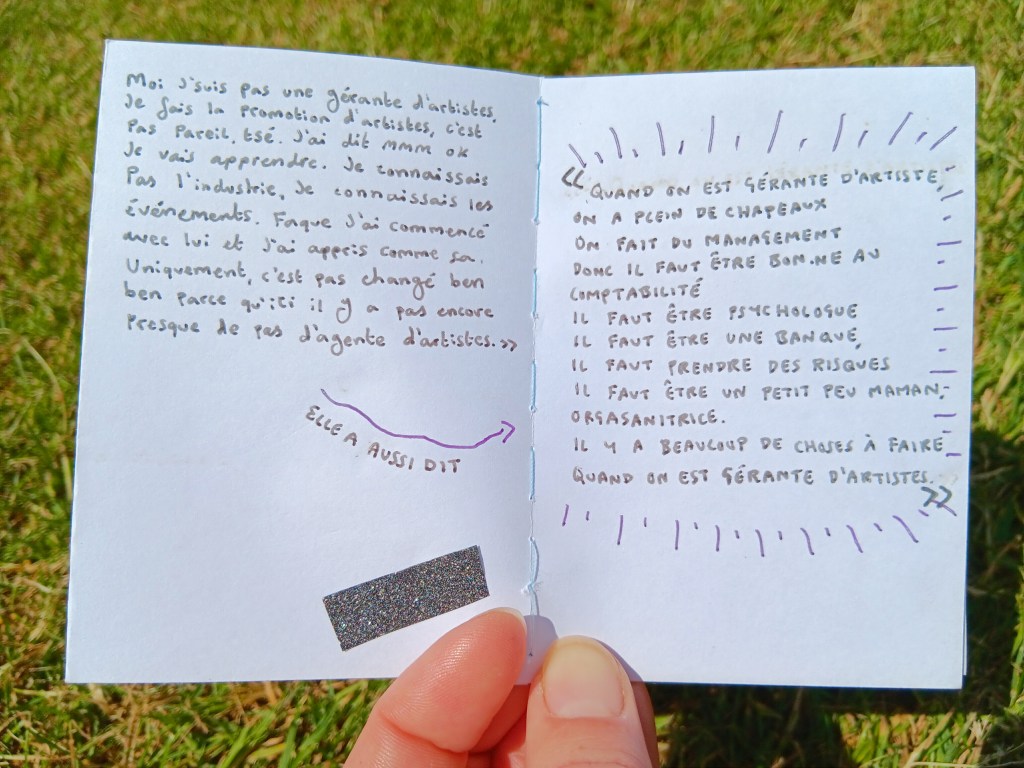 Moi j'suis pas une gérante d'artistes,
Je fais la promotion d'artistes, c'est
Pas pareil, tsé. J'ai dit mmm ok
Je vais apprendre. Je connaissais
Pas l'industrie, Je connaissais les
événements. Faque J'ai commencé
avec lui et J'ai appris comme sa.
Uniquement, c'est pas changé ben
ben parce qu'ici il y a pas encore
presque de pas d'agente d'artistes.»
ELLE A AUSSI DIT
« QUAND ON EST GÉRANTE D'ARTISTE,
ON A PLEIN DE CHAPEAUX
ON FAIT DU MANAGEMENT
DONC IL FAUT ÊTRE BON.NE AU
COMPTABILITÉ
IL FAUT ÊTRE PSYCHOLOGUE
IL FAUT ÊTRE UNE BANQUE,
IL FAUT PRENDRE DES RISQUES
IL FAUT ÊTRE UN PETIT PEU MAMAN,
ORGASANITRICE.
IL Y A BEAUCOUP DE CHOSES À FAIRE
QUAND ON EST GÉRANTE D'ARTISTES. »